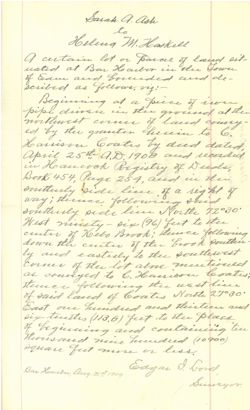 Sarah A Ash
to
Helena M. Haskell
A certain lot or parcel of land sit-
uated at Bar Harbor in the Town
of Eden and bounded and de-
scribed as follows, viz:-
Beginning at a piece of iron
pipe driven in the ground at the
northwest corner of land convey-
ed by the grantor herein to C.
Harrison Coates by deed dated
April 25th A.D. 1908 and recorded
in Hancock Registry of Deeds,
Book 454, Page 259, and in the
southerly side line of a right of
way; thence following said
southerly side line North 72°30'
West ninety-six (96) feet to the
centre of Brook; thence following
down the center of the brook souther-
ly and easterly to the southwest
corner of the lot above mentioned
as conveyed to C. Harrison Coates;
thence following the west line
of said land of Coates North 27°30'
East one hundred and thirteen and
six tenths (113.6) feet to the place
of beginning and containing ten
thousand nine hundred (10900)
square feet more or less.
Edgar I. Lord
Bar Harbor, Aug
Surveyor